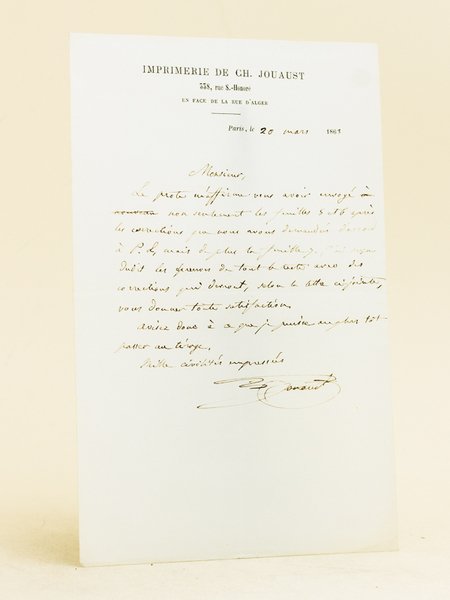 IMPRIMERIE DE CH. JOUAUST
338, rue S.-Honoré
EN FACE DE LA RUE D'ALGER
Paris, le 20 mars 1861
Monsieur,
Le prote m'affirme vous avoir envoyé à
nouveau non seulement les feuilles 5 et 6 après
les corrections que nous avons demandées
à P. L, mais de plus la feuille 7.
du tout le reste avec des
corrections qui devront, selon la lettre ci-jointe,
vous donner toute satisfaction.
Avisez donc à ce que je puisse au plus tôt
passer au tirage.
Mille civilités empressées
Jouaust